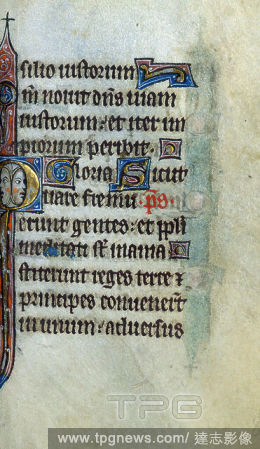 silio iustorum
qm̄ nouit dn̄s uiam
iustorum: et iter im
piorum peribit.
Gloria Sicut
Quare fremu· ps̄·
erunt gentes: et ppl̄i
meditati st̄ inania
stiterunt reges terre ⁊
principes conuenerūt
in unum: aduersus
TPG
www.tpgnews.com/ 達志影像